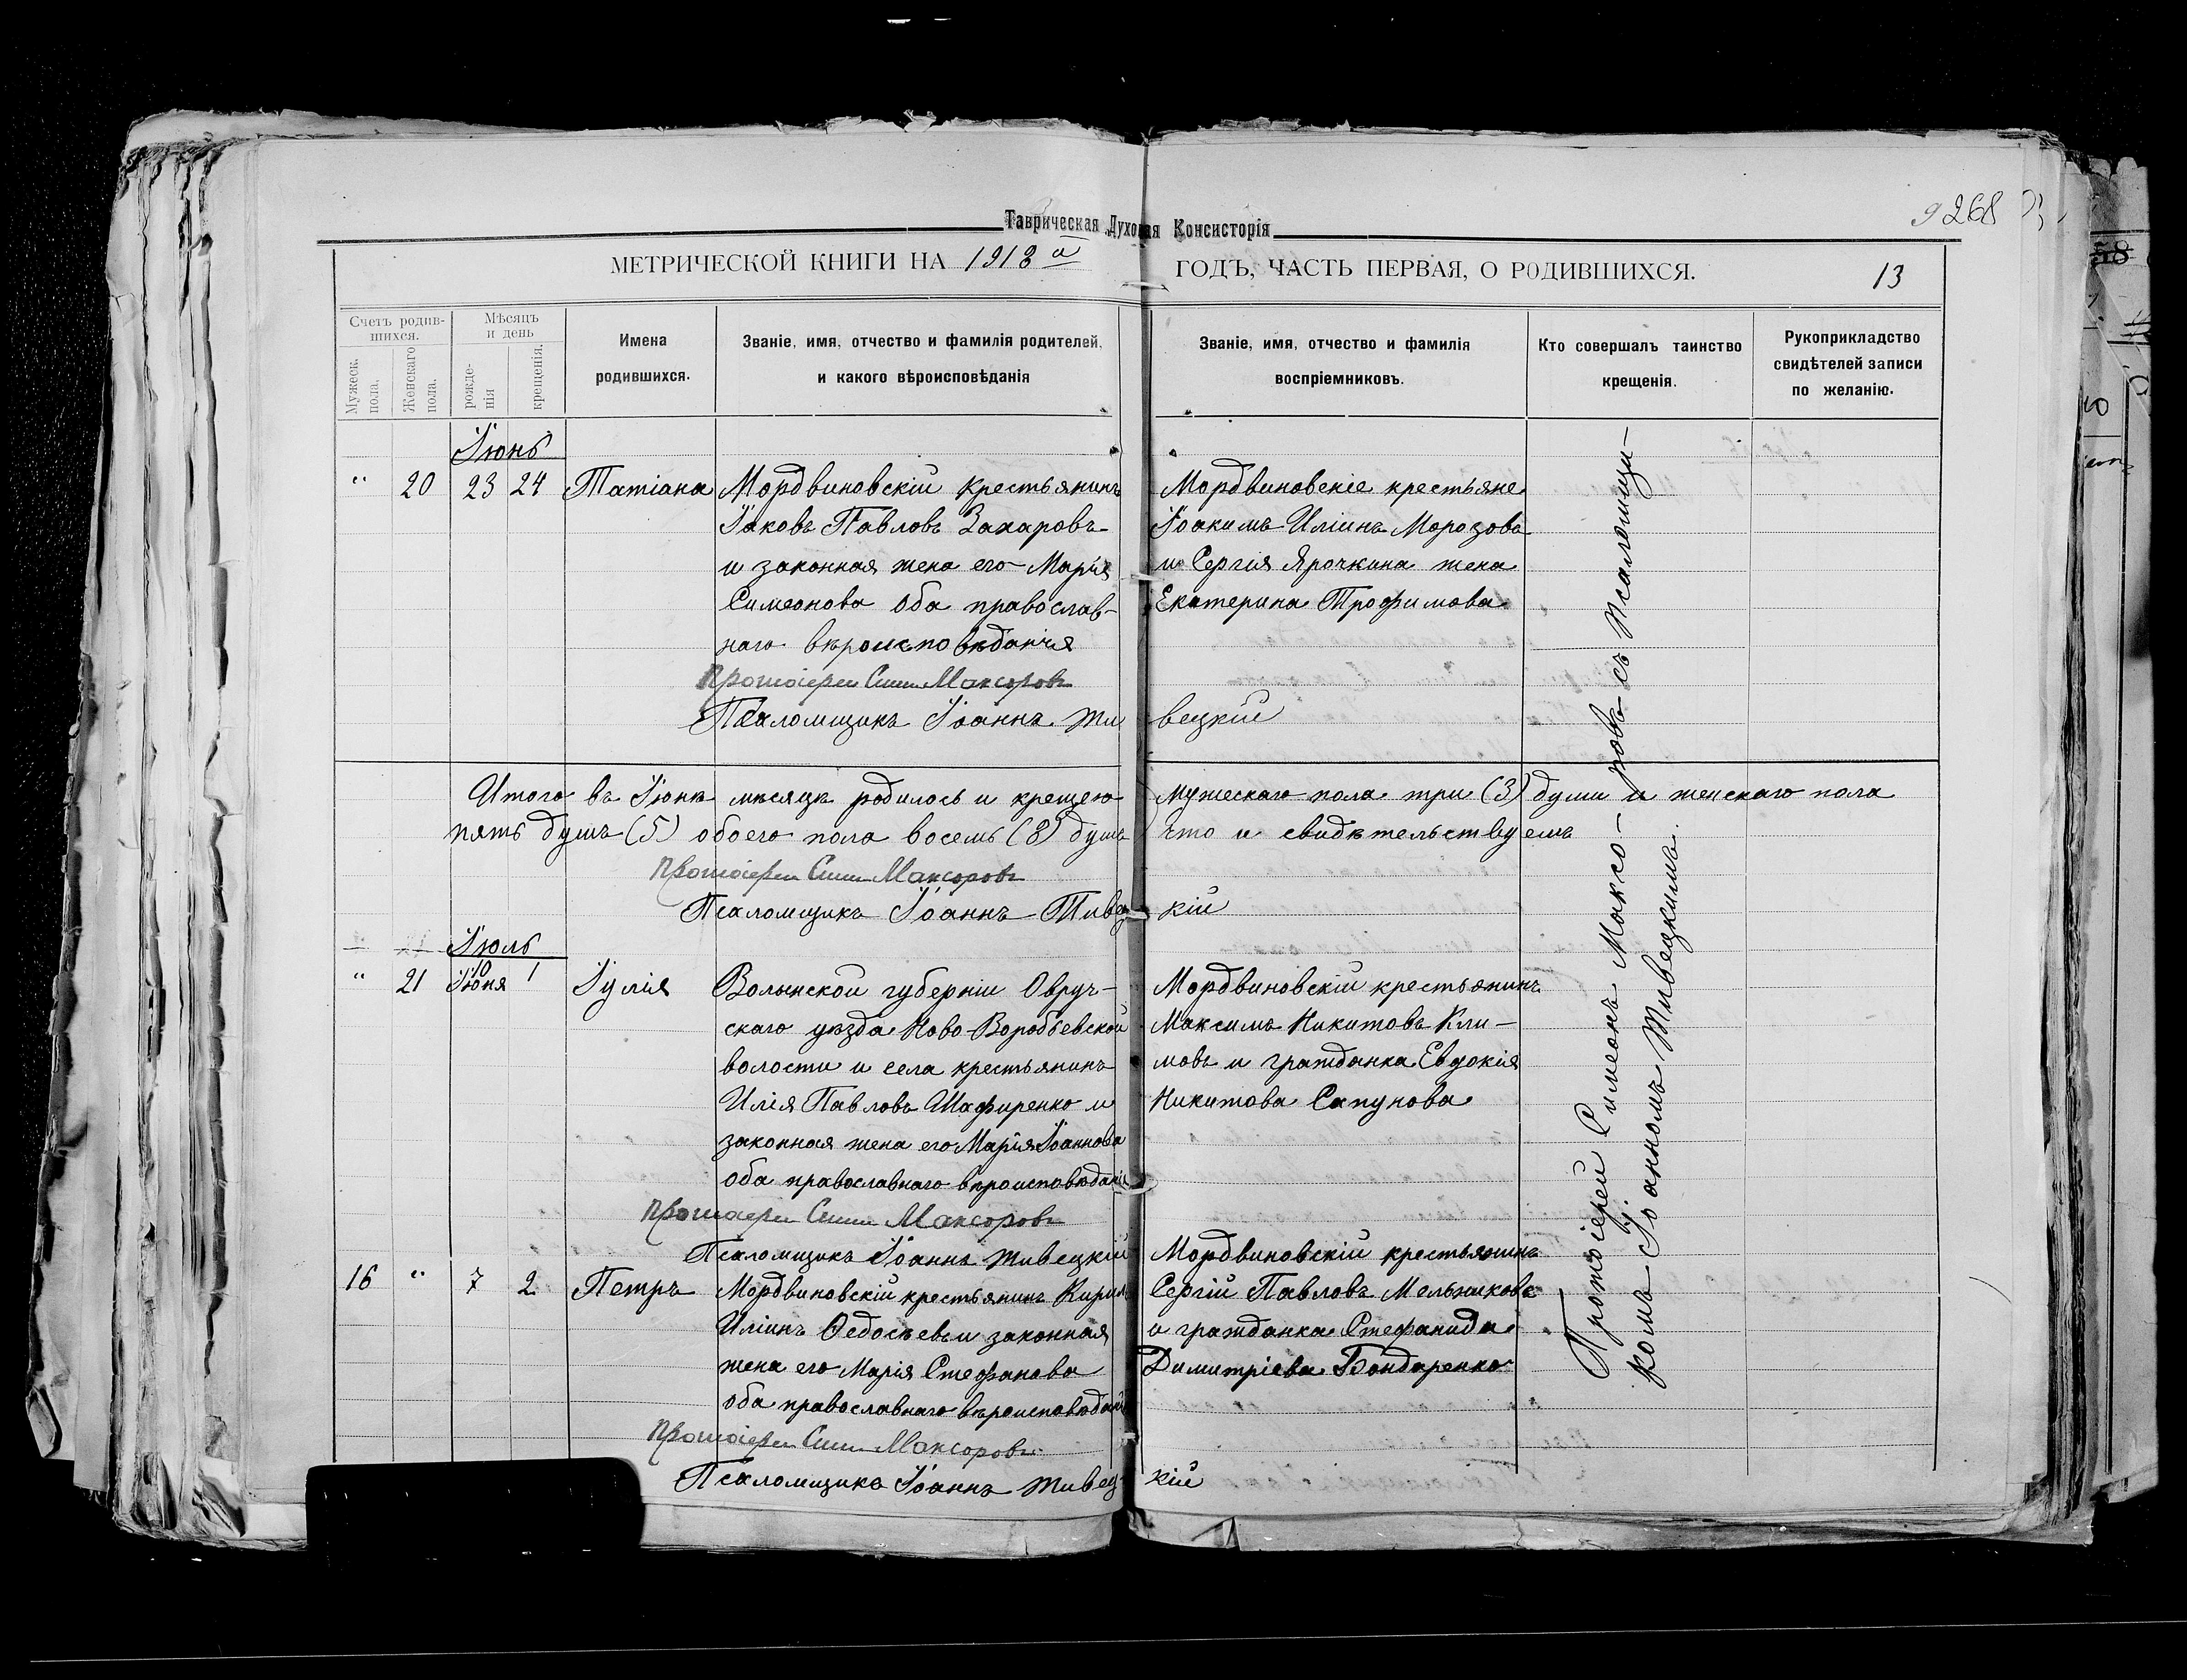 9268
Таврическая Духовная Консисторія
МЕТРИЧЕСКОЙ КНИГИ НА 1918 й ГОДЪ, ЧАСТЬ ПЕРВАЯ, О РОДИВШИХСЯ. 13
Счетъ родив-
шихся.
Мужеск. пола.
Женскаго пола.
Мѣсяцъ и день
рожде-
нія
крещенія.
Имена
родившихся.
Званіе, имя, отчество и фамилія родителей,
и какого вѣроисповѣданія
Званіе, имя, отчество и фамилія
воспріемниковъ.
Кто совершалъ таинство
крещенія.
Рукоприкладство
свидѣтелей записи
по желанію.
Іюнь
" 20 23 24 Татіана
Мордвиновскій крестьянинъ
Іаковъ Павловъ Захаровъ
и законная жена его Марія
Симеонова оба православ-
наго вѣроисповѣданія
Мордвиновскіе крестьяне
Іоакимъ Иліинъ Морозовъ
и Сергія Ярочкина жена
Екатерина Трофимова
Протоіерей Сим Максоровъ
Псаломщикъ Іоаннъ Тивецкій
Итого въ Іюнѣ мѣсяцѣ родилось и крещено мужескаго пола три (3) души и женскаго пола
пять душъ (5) обоего пола восемь (8) душъ что и свидѣтельствуемъ
Протоіерей Сим Максоровъ
Псаломщикъ Іоаннъ Тивецкій
Іюль
" 21 10 Іюня 1 Іулія
Волынской губерніи Овруч-
скаго уѣзда Ново-Воробьевской
волости и села крестьянинъ
Илія Павловъ Шафиренко и
законная жена его Марія Іоаннова
оба православнаго вѣроисповѣданія
Мордвиновскій крестьянинъ
Максимъ Никитовъ Кли-
мовъ и гражданка Евдокія
Никитова Сапунова
Протоіерей Сим Максоровъ
Псаломщикъ Іоаннъ Тивецкій
16 " 7 2 Петръ
Мордвиновскій крестьянинъ Кирил
Иліинъ Ѳедосѣевъ и законная
жена его Марія Стефанова
оба православнаго вѣроисповѣданія
Мордвиновскій крестьянинъ
Сергій Павловъ Мельниковъ
и гражданка Стефанида
Димитріева Бондаренко
Протоіерей Сим Максоровъ
Псаломщикъ Іоаннъ Тивецкій
Протоіерей Симеонъ Максо-ровъ съ псаломщи-
комъ Іоанномъ Тивецкимъ.